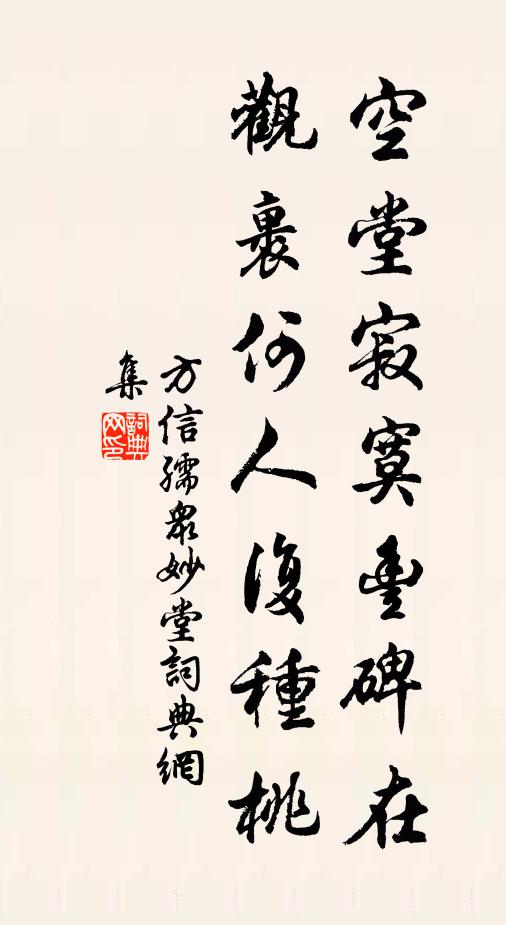 空堂寂寞豐碑在
觀裏何人復種桃
方信孺眾妙堂詞典網
集
詞典网印